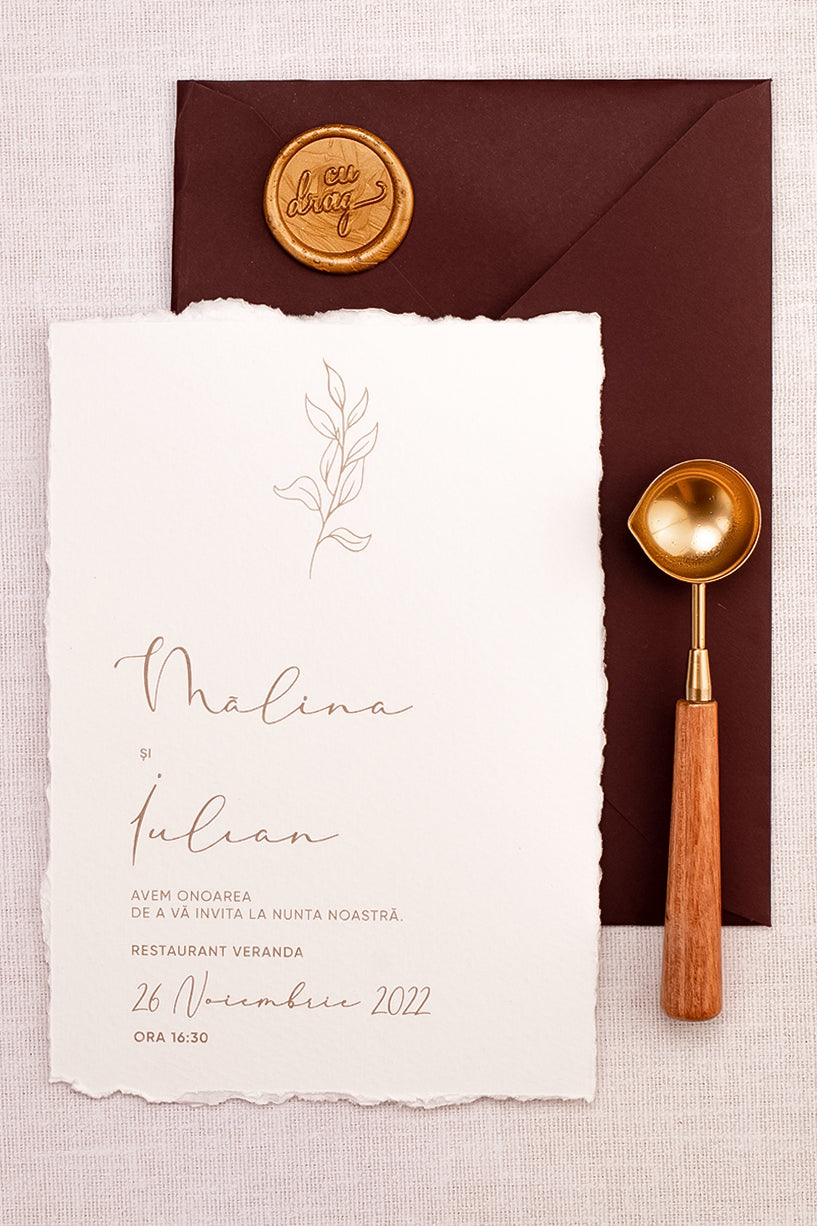 cu
drag
Mălina
și
Iulian
AVEM ONOAREA
DE A VĂ INVITA LA NUNTA NOASTRĂ.
RESTAURANT VERANDA
26 Noiembrie 2022
ORA 16:30